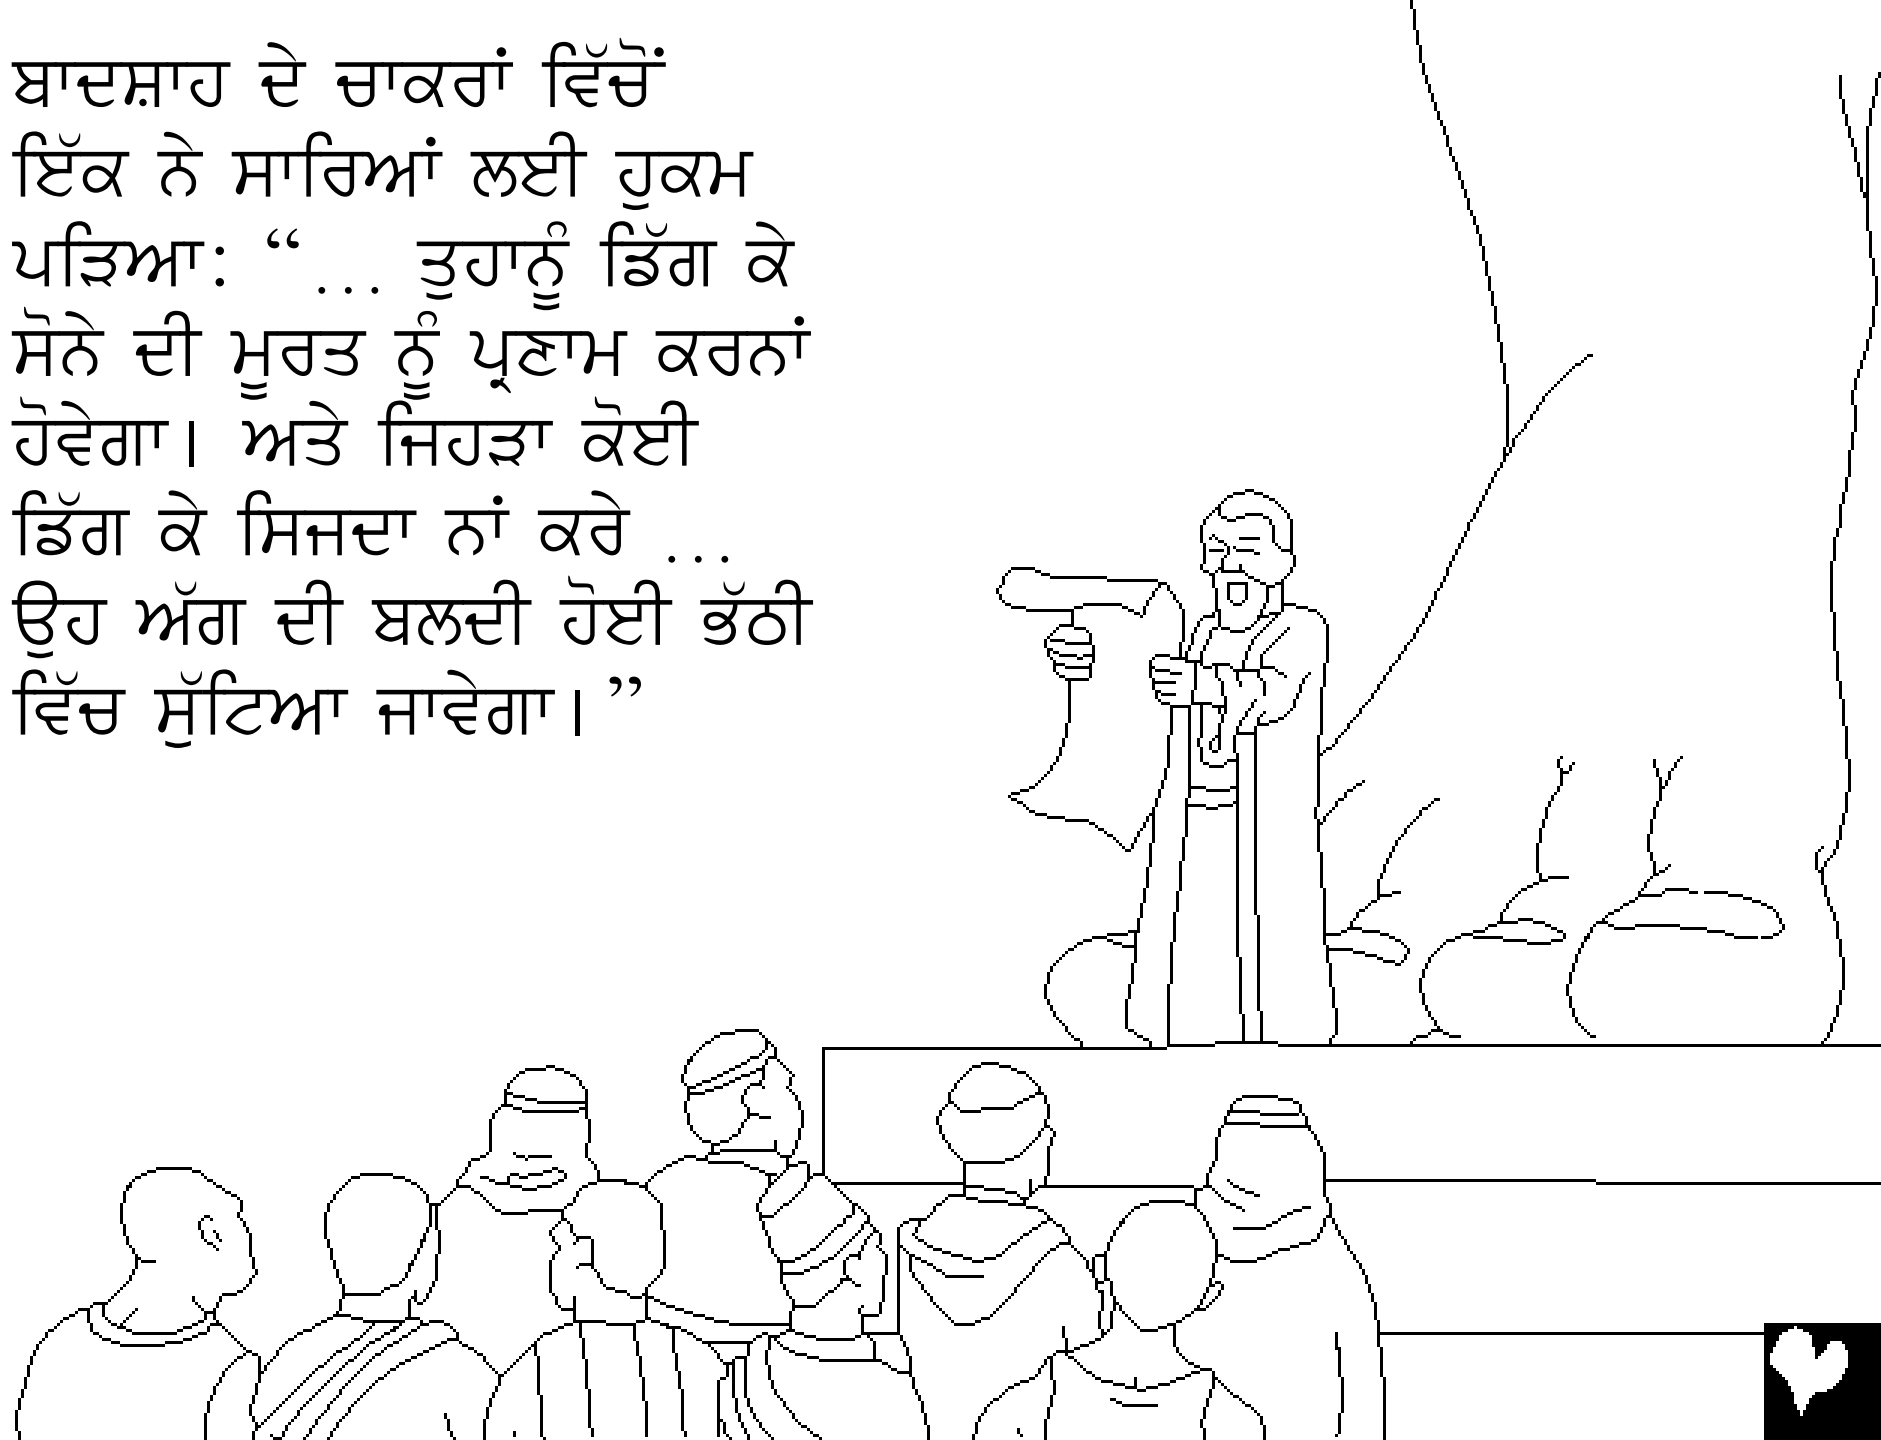 ਬਾਦਸ਼ਾਹ ਦੇ ਚਾਕਰਾਂ ਵਿੱਚੋਂ
ਇੱਕ ਨੇ ਸਾਰਿਆਂ ਲਈ ਹੁਕਮ
ਪੜਿਆ: “... ਤੁਹਾਨੂੰ ਡਿੱਗ ਕੇ
ਸੋਨੇ ਦੀ ਮੂਰਤ ਨੂੰ ਪ੍ਰਣਾਮ ਕਰਨਾਂ
ਹੋਵੇਗਾ। ਅਤੇ ਜਿਹੜਾ ਕੋਈ
ਡਿੱਗ ਕੇ ਸਿਜਦਾ ਨਾਂ ਕਰੇ ...
ਉਹ ਅੱਗ ਦੀ ਬਲਦੀ ਹੋਈ ਭੱਠੀ
ਵਿੱਚ ਸੁੱਟਿਆ ਜਾਵੇਗਾ।”